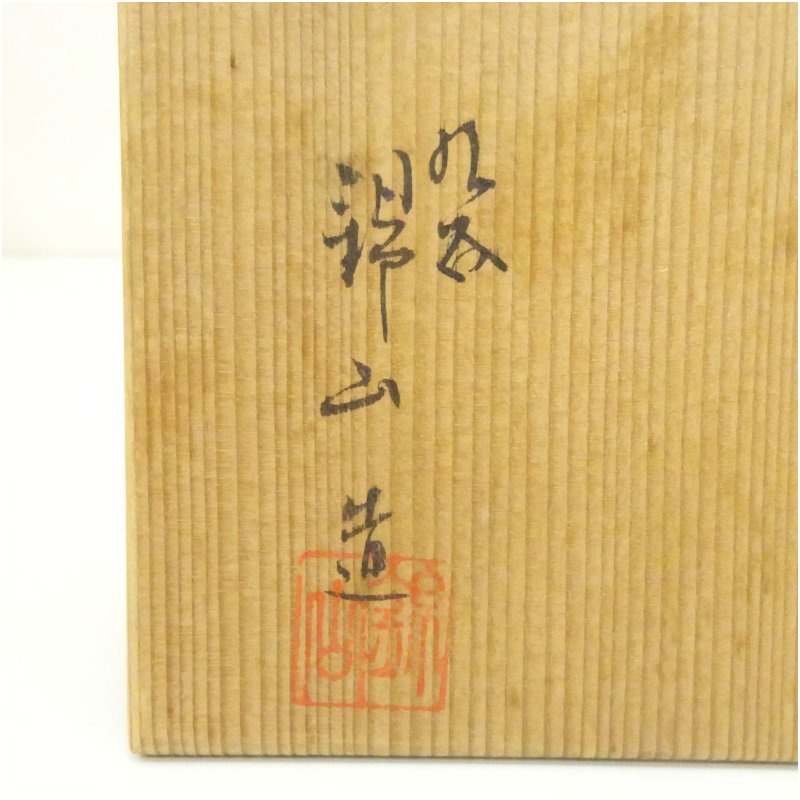 九谷
錦山造